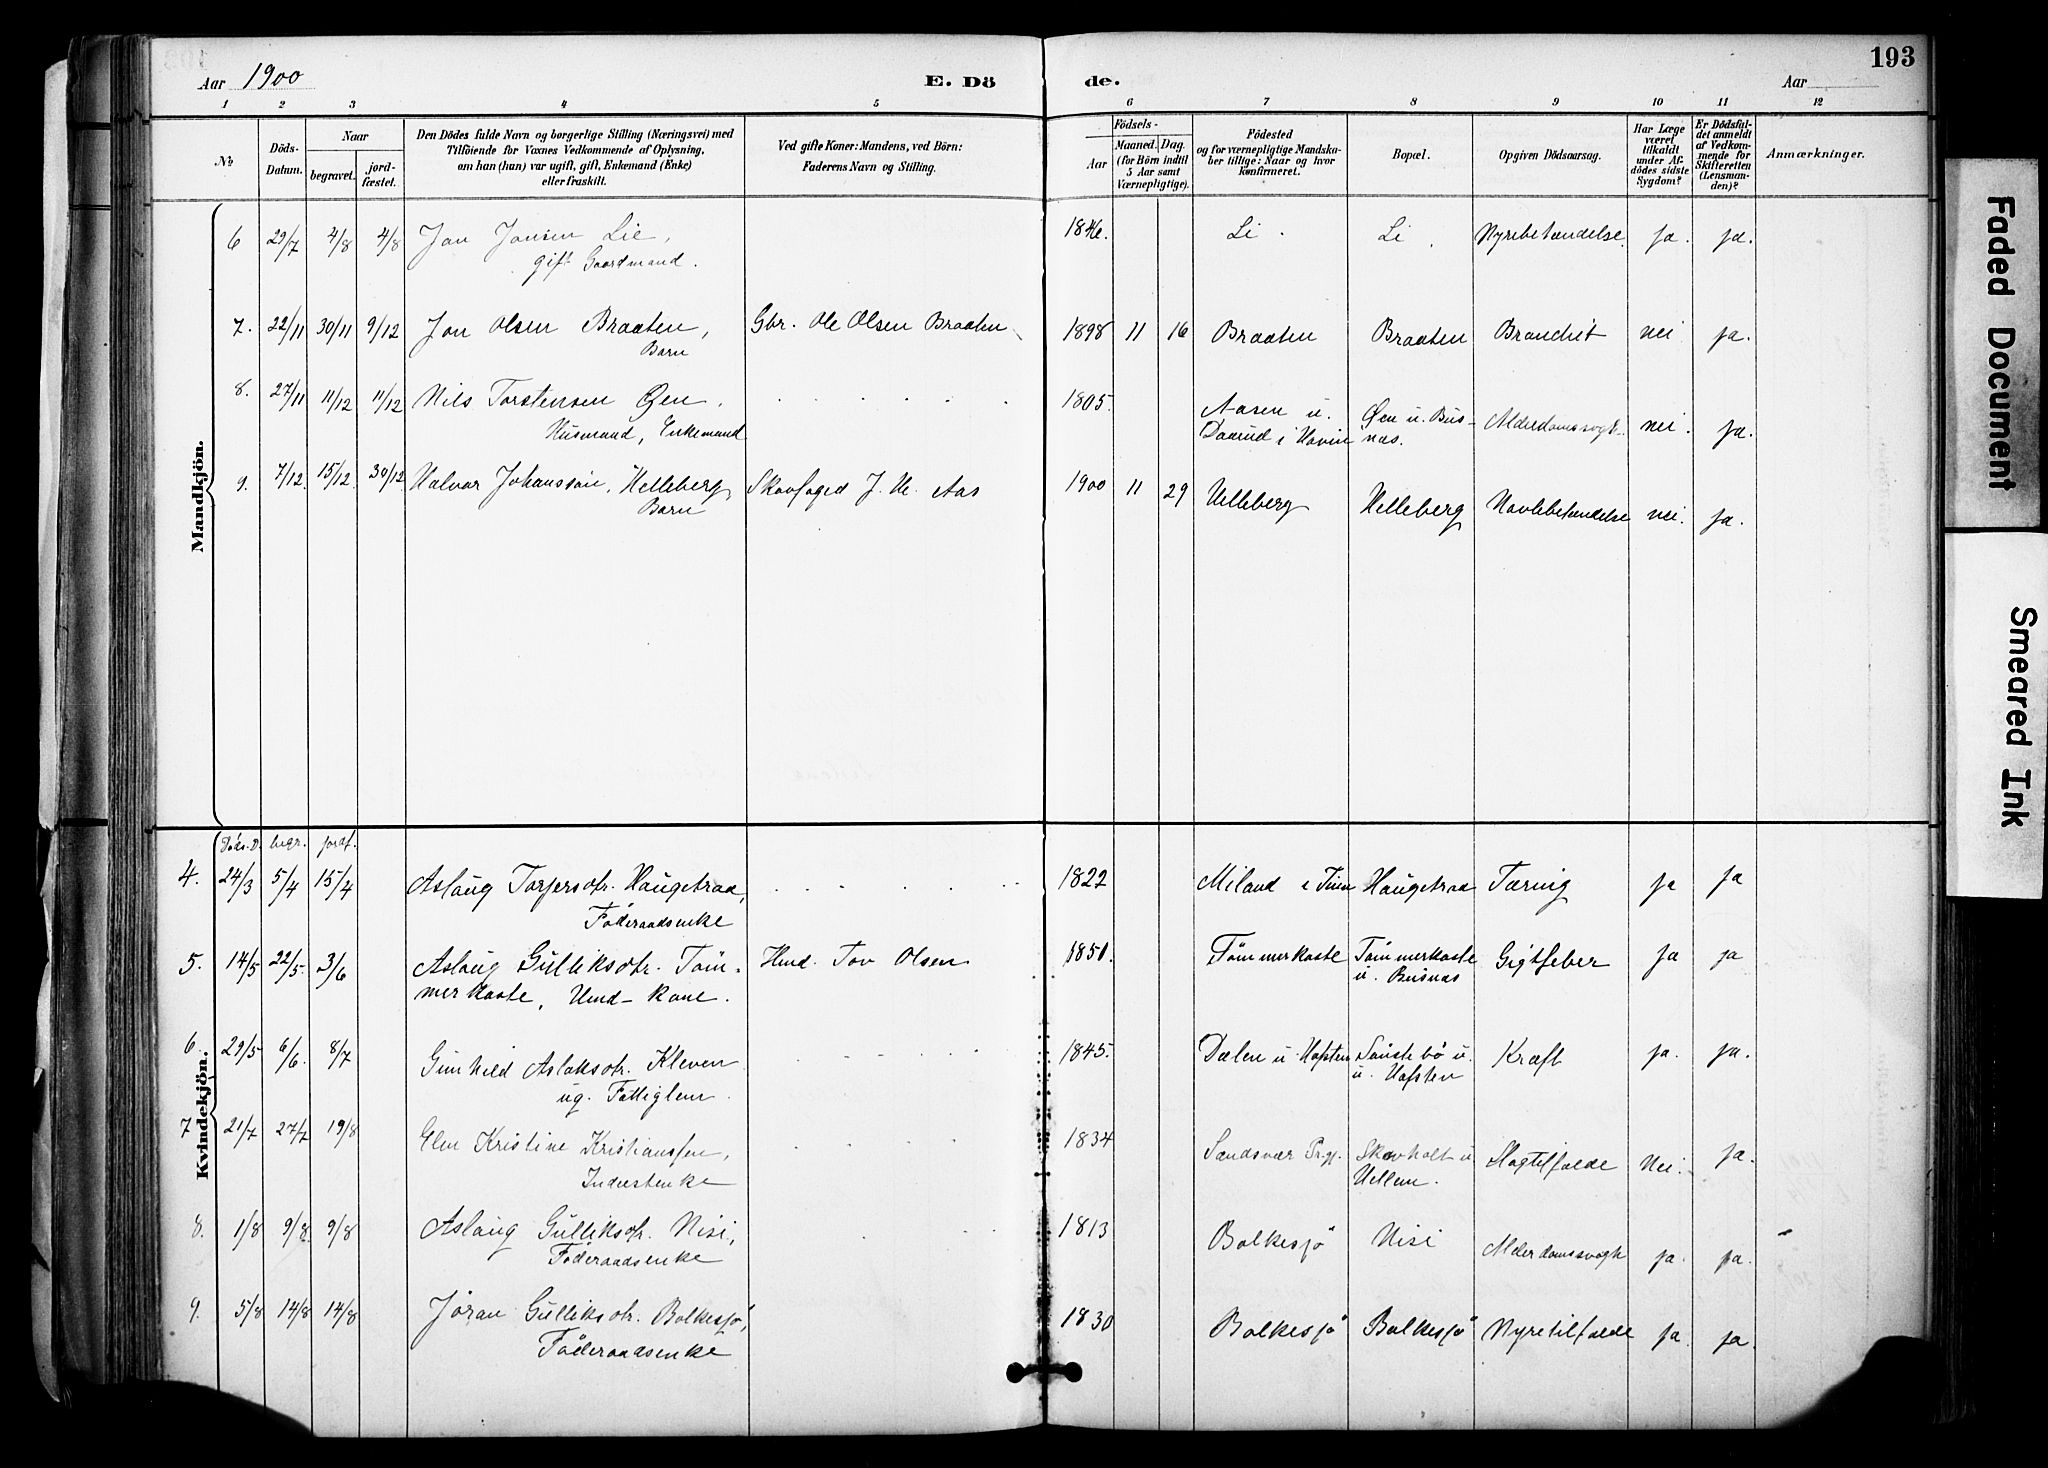 193
Aar 1900
E. Dö
de.
Aar
1 2 3 4 5 6 7 8 9 10 11 12
No
Döds-
Datum.
Naar
begravet.
jord-
fæstet.
Den Dödes fulde Navn og borgerlige Stilling (Næringsvei) med
Tilföiende for Voxnes Vedkommende af Oplysning,
om han (hun) var ugift, gift, Enkemand (Enke)
eller fraskilt.
Ved gifte Koner: Mandens, ved Börn:
Faderens Navn og Stilling.
Födsels-
Aar
Maaned. Dag.
(for Börn indtil
5 Aar samt
Værnepligtige).
Födested
og for værnepligtige Mandska-
ber tillige: Naar og hvor
konfirmeret.
Bopæl.
Opgiven Dödsaarsag.
Har Læge
været
tilkaldt
under Af-
dödes sidste
Sygdom?
Er Dödsfal-
det anmeldt
af Vedkom-
mende for
Skifteretten
(Lensman-
den)?
Anmærkninger.
Mandkjön.
6 29/7 4/8 4/8 Jon Jonsen Lie, 1846. Li. Li. Nyrebetændelse. ja. ja.
gift Gaardmand.
7. 22/11 30/11 9/12 Jon Olsen Braaten, Gbr. Ole Olsen Braaten 1898 11 16 Braaten Braaten Bronchit nei ja.
Barn
8. 27/11 11/12 11/12 Nils Torstensen Øen, 1805. Aasen u. Øen u. Bus-
Husmand, Enkemand Daarud i Hovin næs. Alderdomssvagh. nei. ja.
9. 7/12. 15/12 30/12 Halvor Johanssön, Helleberg, Skovfoged J. H. Aas 1900 11 29 Helleberg Helleberg Navlebetændelse nei. ja.
Barn
Kvindekjön.
Döds-D. begr. jordf.
4. 24/3 5/4 15/4 Aslaug Torjersdtr. Haugetraa, 1822 Miland i Tinn Haugetraa Tæring ja ja
Föderaadsenke
5. 14/5 22/5. 3/6 Aslaug Gulliksdtr. Töm- Hmd. Tov Olsen 1850. Tömmerkaste Tömmerkaste Gigtfeber ja ja
merkaste, Hmd-kone. u. Busnæs
6. 29/5 6/6. 8/7 Gunhild Aslaksdtr. Kleven 1845. Dælen u. Hafsten u. Kræft ja. ja.
ug. Fattiglem. u. Hafsten
7 21/7 27/7 19/8 Kristine Kristianssen, 1834 Sandsvær Prgj. Skovholt u. Slagtilfælde Nei. ja.
Inderstenke Hellem.
8. 1/8 9/8. 9/8 Aslaug Gulliksdtr. Nisi, 1813 Bolkesjö Nisi Alderdomssvagh ja. ja.
Föderaadsenke
9. 5/8 14/8 14/8 Jöran Gulliksdtr. Bolkesjö, 1830 Bolkesjö Bolkesjö Nyretilfælde ja ja.
Föderaadsenke
Faded Document
Smeared Ink